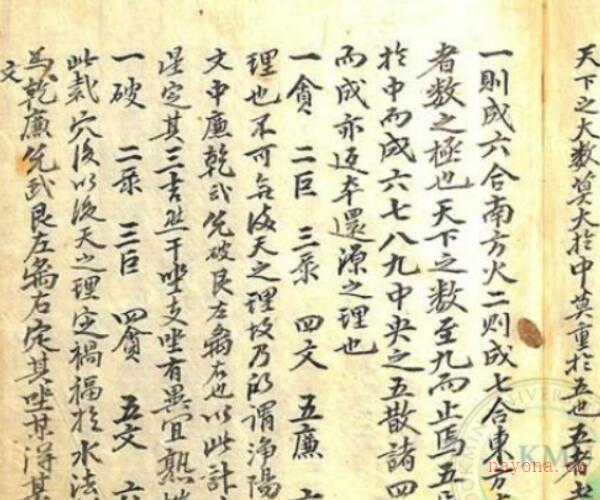 天下之大数莫大於中莫重於五也五者
一則成六合南方火二則成七合東方
者数之極也天下之数至九而止焉五
於中而成六七八九中央之五散諸四
而成亦返本還源之理也
一貪 二巨 三彔 四文 五廉
理也不可無後天之理故乃所謂净陽
文中廉乾武凭破艮左輔右也以此計
定其三吉四干坐支坐有異宜熟
一破 二彔 三巨 四貪 五文 六
此裁穴後以後天之理定禍福於水法
為乾廉凭武艮左輔右定其坐某得某
文
nayona.cn
KM